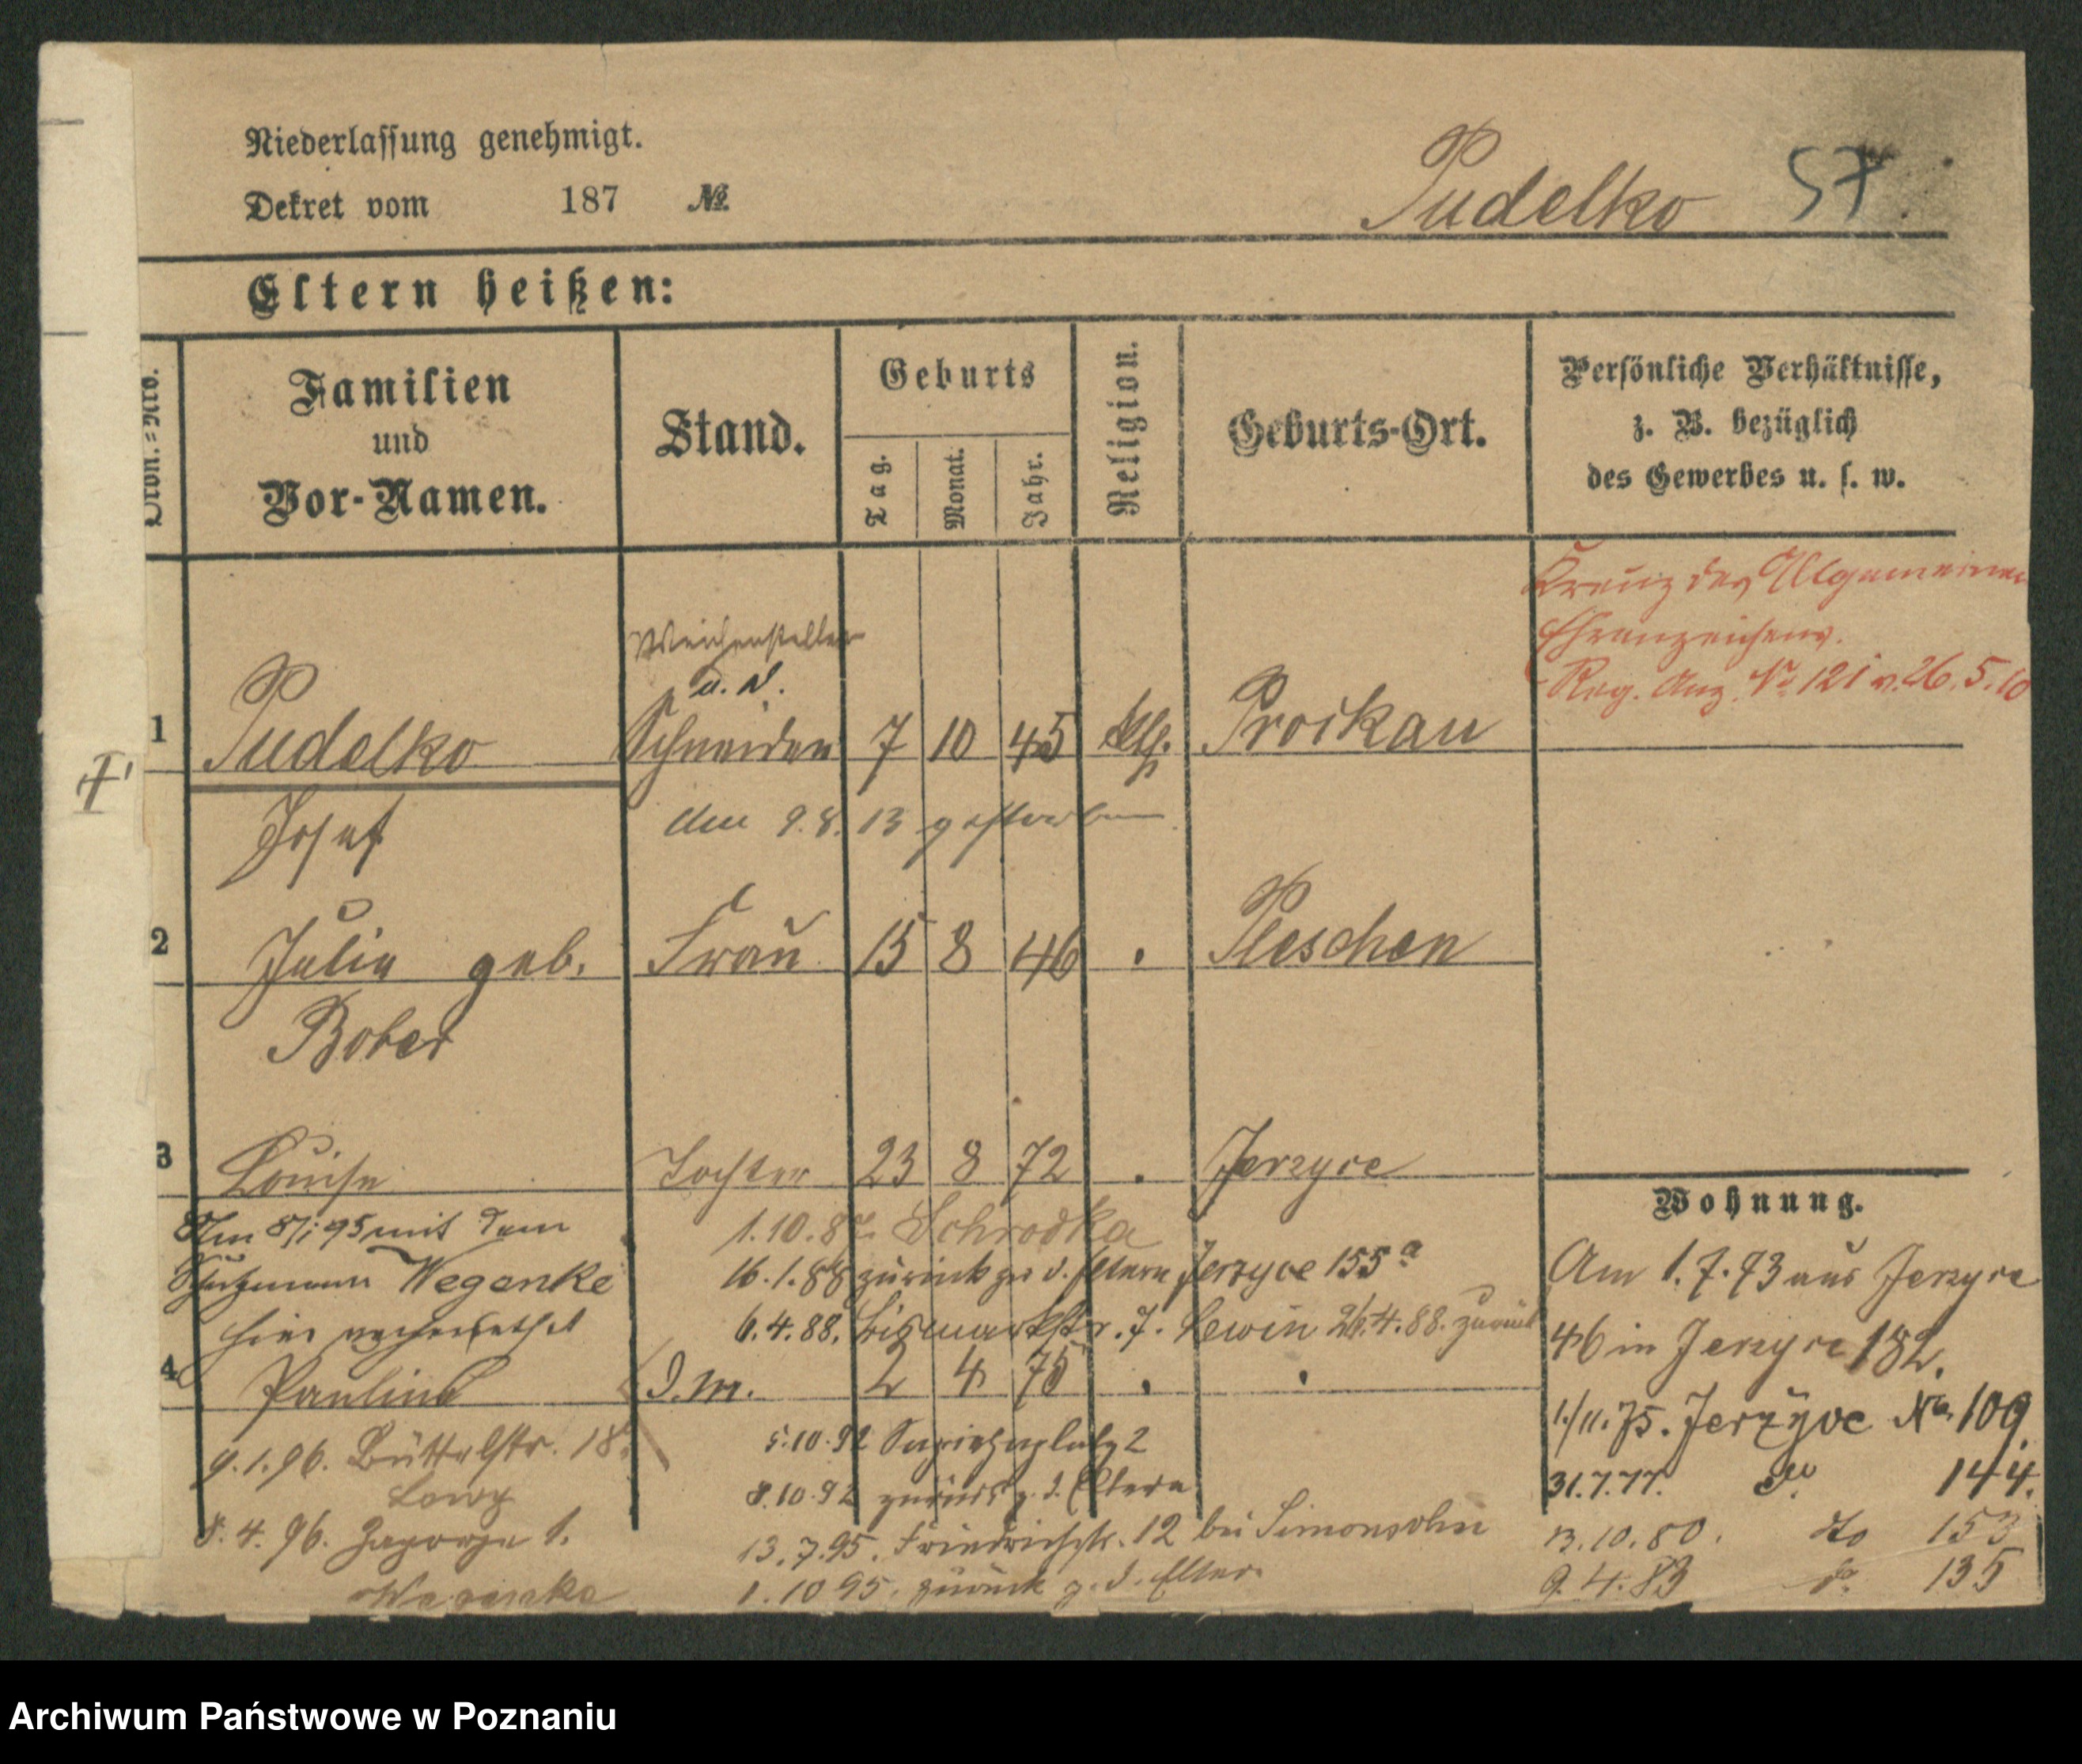 Niederlassung genehmigt.
Dekret vom 187 №
Pudelko 57
Eltern heißen:
Ordn.=Nro.
Familien
und
Vor-Namen.
Stand.
Geburts
Tag.
Monat.
Jahr.
Religion.
Geburts-Ort.
Persönliche Verhältnisse,
z. B. bezüglich
des Gewerbes u. s. w.
Kreuz des Allgemeinen
Ehrenzeichens.
Reg. Anz. Nr 121 v. 26.5.10
Weichensteller
a. D.
1 Pudelko Schneider 7 10 45 kth. Proskau
Josef
den 9.8.13 gestorben
2 Julie geb. Frau 15 8 46 . Pleschen
Bober
3 Louise Tochter 23 8 72 . Jerzyce
Am 8/1 95 mit dem
Schutzmann Wegenke
hier verheirathet
1.10.87 Schrodka
16.1.88 zurück zu d. Eltern Jerzyce 155a
6.4.88. Bismarckstr. 7. Lewin 26.4.88. zurück
4 Pauline d. m. 2 4 75 . .
9.1.96. Büttelstr. 18
Lowy
8.4.96. Zagorze 1.
5.10.92 Sapiehaplatz 2
8.10.92 zurück z. d. Eltern
13.7.95. Friedrichstr. 12 bei Simonsohn
1.10 95. zurück z. d. Elter.
Wohnung.
Am 1.7.73 aus Jerzyce
46 in Jerzyce 182.
1./11.75. Jerzyce No. 109
31.7.77. do. 144.
13.10.80. do 153
9.4.83 do. 135
Archiwum Państwowe w Poznaniu